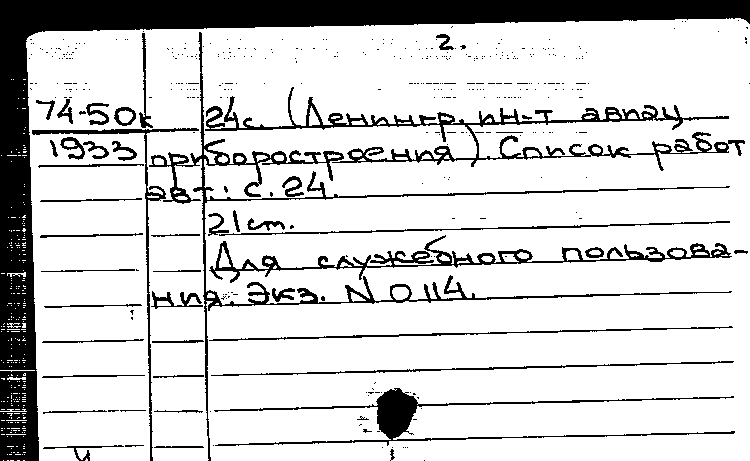 2.
74-50к 24с. (Ленингр. ин-т авиац.
1933 приборостроения). Список работ
авт.: с. 24.
21 ст.
Для служебного пользова-
ния. Экз. N 0114.